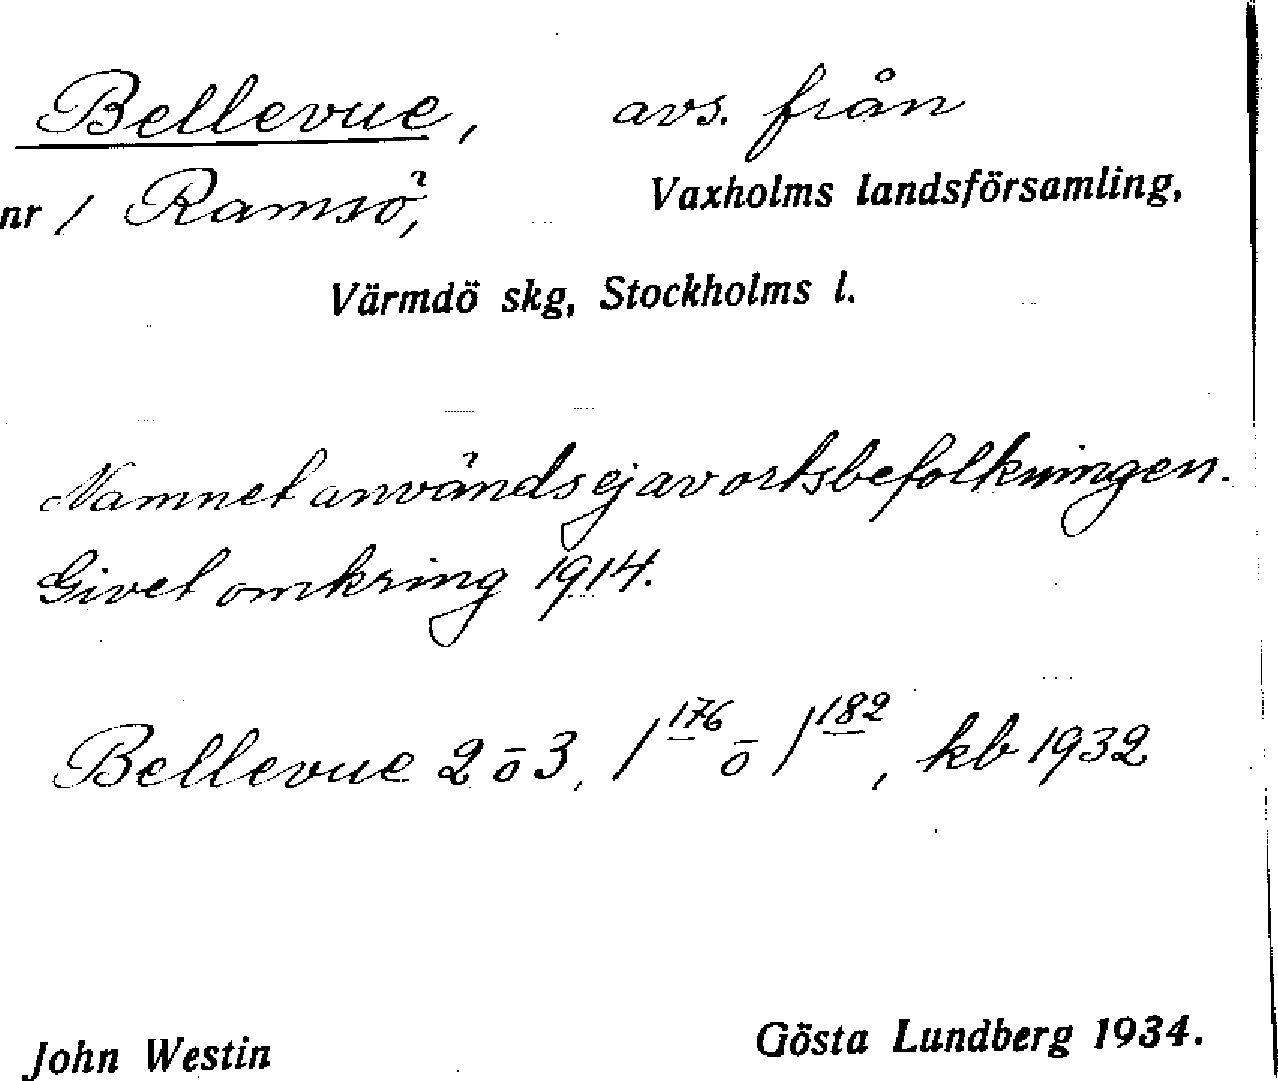 Bellevue, avs. från
nr 1 Ramsö, Vaxholms landsförsamling,
Värmdö skg, Stockholms l.
Namnet användes ej av ortsbefolkningen.
Givet omkring 1914.
Bellevue 2 o 3, 1 176 o 1 182, kb 1932
John Westin Gösta Lundberg 1934.